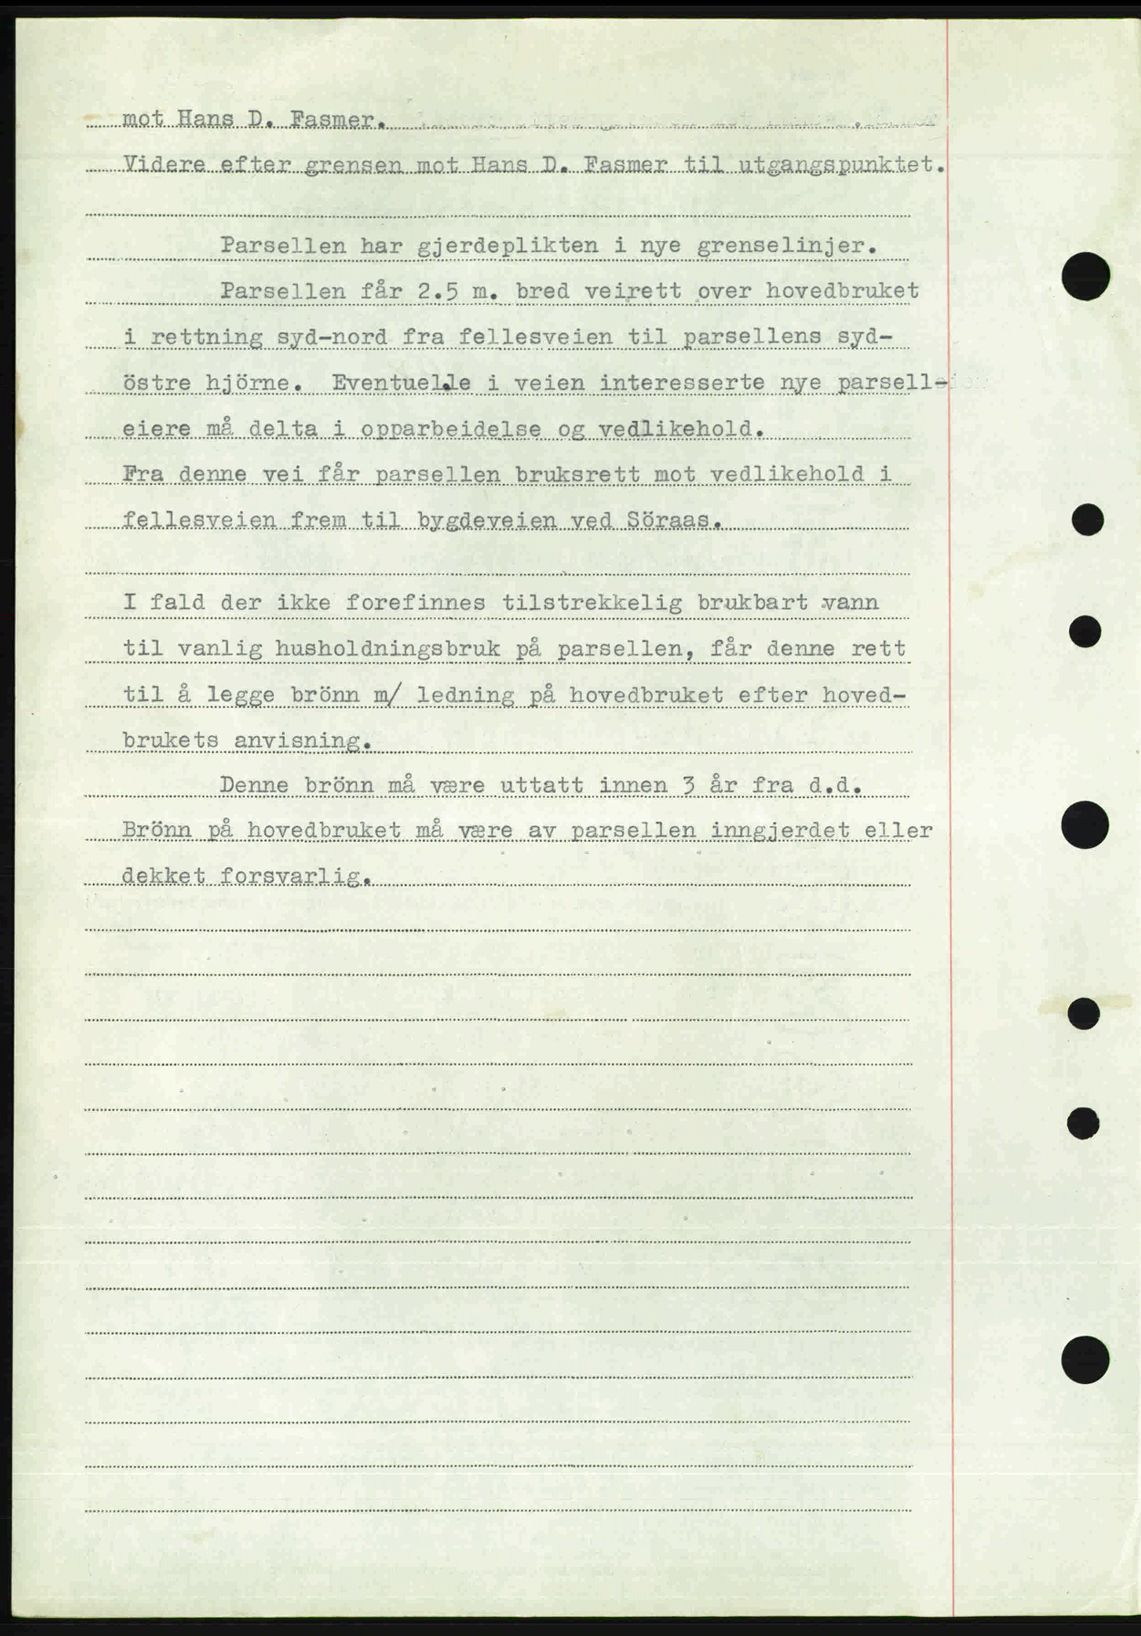 mot Hans D. Fasmer.
Videre efter grensen mot Hans D. Fasmer til utgangspunktet.
Parsellen har gjerdeplikten i nye grenselinjer.
Parsellen får 2.5 m. bred veirett over hovedbruket
i rettning syd-nord fra fellesveien til parsellens syd-
östre hjörne. Eventuelle i veien interesserte nye parsell-
eiere må delta i opparbeidelse og vedlikehold.
Fra denne vei får parsellen bruksrett mot vedlikehold i
fellesveien frem til bygdeveien ved Söraas.
I fald der ikke forefinnes tilstrekkelig brukbart vann
til vanlig husholdningsbruk på parsellen, får denne rett
til å legge brönn m/ ledning på hovedbruket efter hoved-
brukets anvisning.
Denne brönn må være uttatt innen 3 år fra d.d.
Brönn på hovedbruket må være av parsellen inngjerdet eller
dekket forsvarlig.